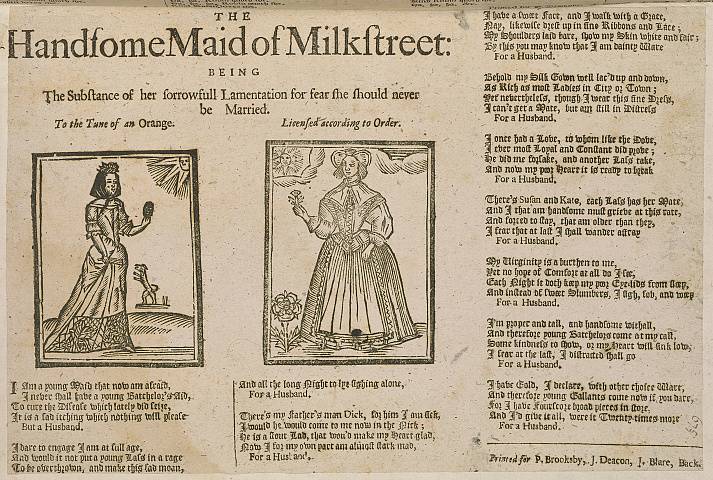 THE
Handſome Maid of Milkſtreet:
BEING
The Subſtance of her ſorrowfull Lamentation for fear ſhe ſhould never
be Married.
To the Tune of an Orange.
Licenſed according to Order.
I Am a young Maid that now am afraid,
I never ſhall have a young Batchelor's Aid,
To cure the Diſeaſe which lately did ſeize,
It is a ſad itching which nothing will pleaſe
But a Husband.
I dare to engage I am at full age,
And would it not put a young Laſs in a rage
To be overthrown, and make this ſad moan,
And all the long Night to lye ſighing alone,
For a Husband.
There's my Father's man Dick, for him I am ſick,
I would he would come to me now in the Nick;
He is a ſtout Lad, that wou'd make my Heart glad,
Now I for my own part am almoſt ſtark mad,
For a Husband.
I have a ſweet Face, and I walk with a Grace,
Nay, likewiſe dreſt up in fine Ribbons and Lace;
My Shoulders laid bare, ſhow my Skin white and fair;
By this you may know that I am dainty Ware
For a Husband.
Behold my Silk Gown well lac'd up and down,
As Rich as moſt Ladies in City or Town;
Yet nevertheleſs, though I wear this fine Dreſs,
I can't get a Mate, but am ſtill in Diſtreſs
For a Husband.
I once had a Love, to whom like the Dove,
I ever moſt Loyal and Conſtant did prove;
He did me forſake, and another Laſs take,
And now my poor Heart it is ready to break
For a Husband.
There's Suſan and Kate, each Laſs has her Mate,
And I that am handſome muſt grieve at this rate,
And forced to ſtay, that am older than they,
I fear that at laſt I ſhall wander aſtray
For a Husband.
My Virginity is a burthen to me,
Yet no hope of Comfort at all do I ſee,
Each Night it doth keep my poor Eye-lids from ſleep,
And inſtead of ſweet Slumbers, I ſigh, ſob, and weep
For a Husband.
I'm proper and tall, and handſome withall,
And therefore young Batchelors come at my call,
Some kindneſs to ſhow, or my Heart will ſink low,
I fear at the laſt, I diſtracted ſhall go
For a Husband.
I have Gold, I declare, with other choice Ware,
And therefore young Gallants come now if you dare,
For I have Fourſcore broad pieces in ſtore,
And I'd give it all, were it Twenty times more
For a Husband.
Printed for P. Brooksby, J. Deacon, J. Blare, Back.